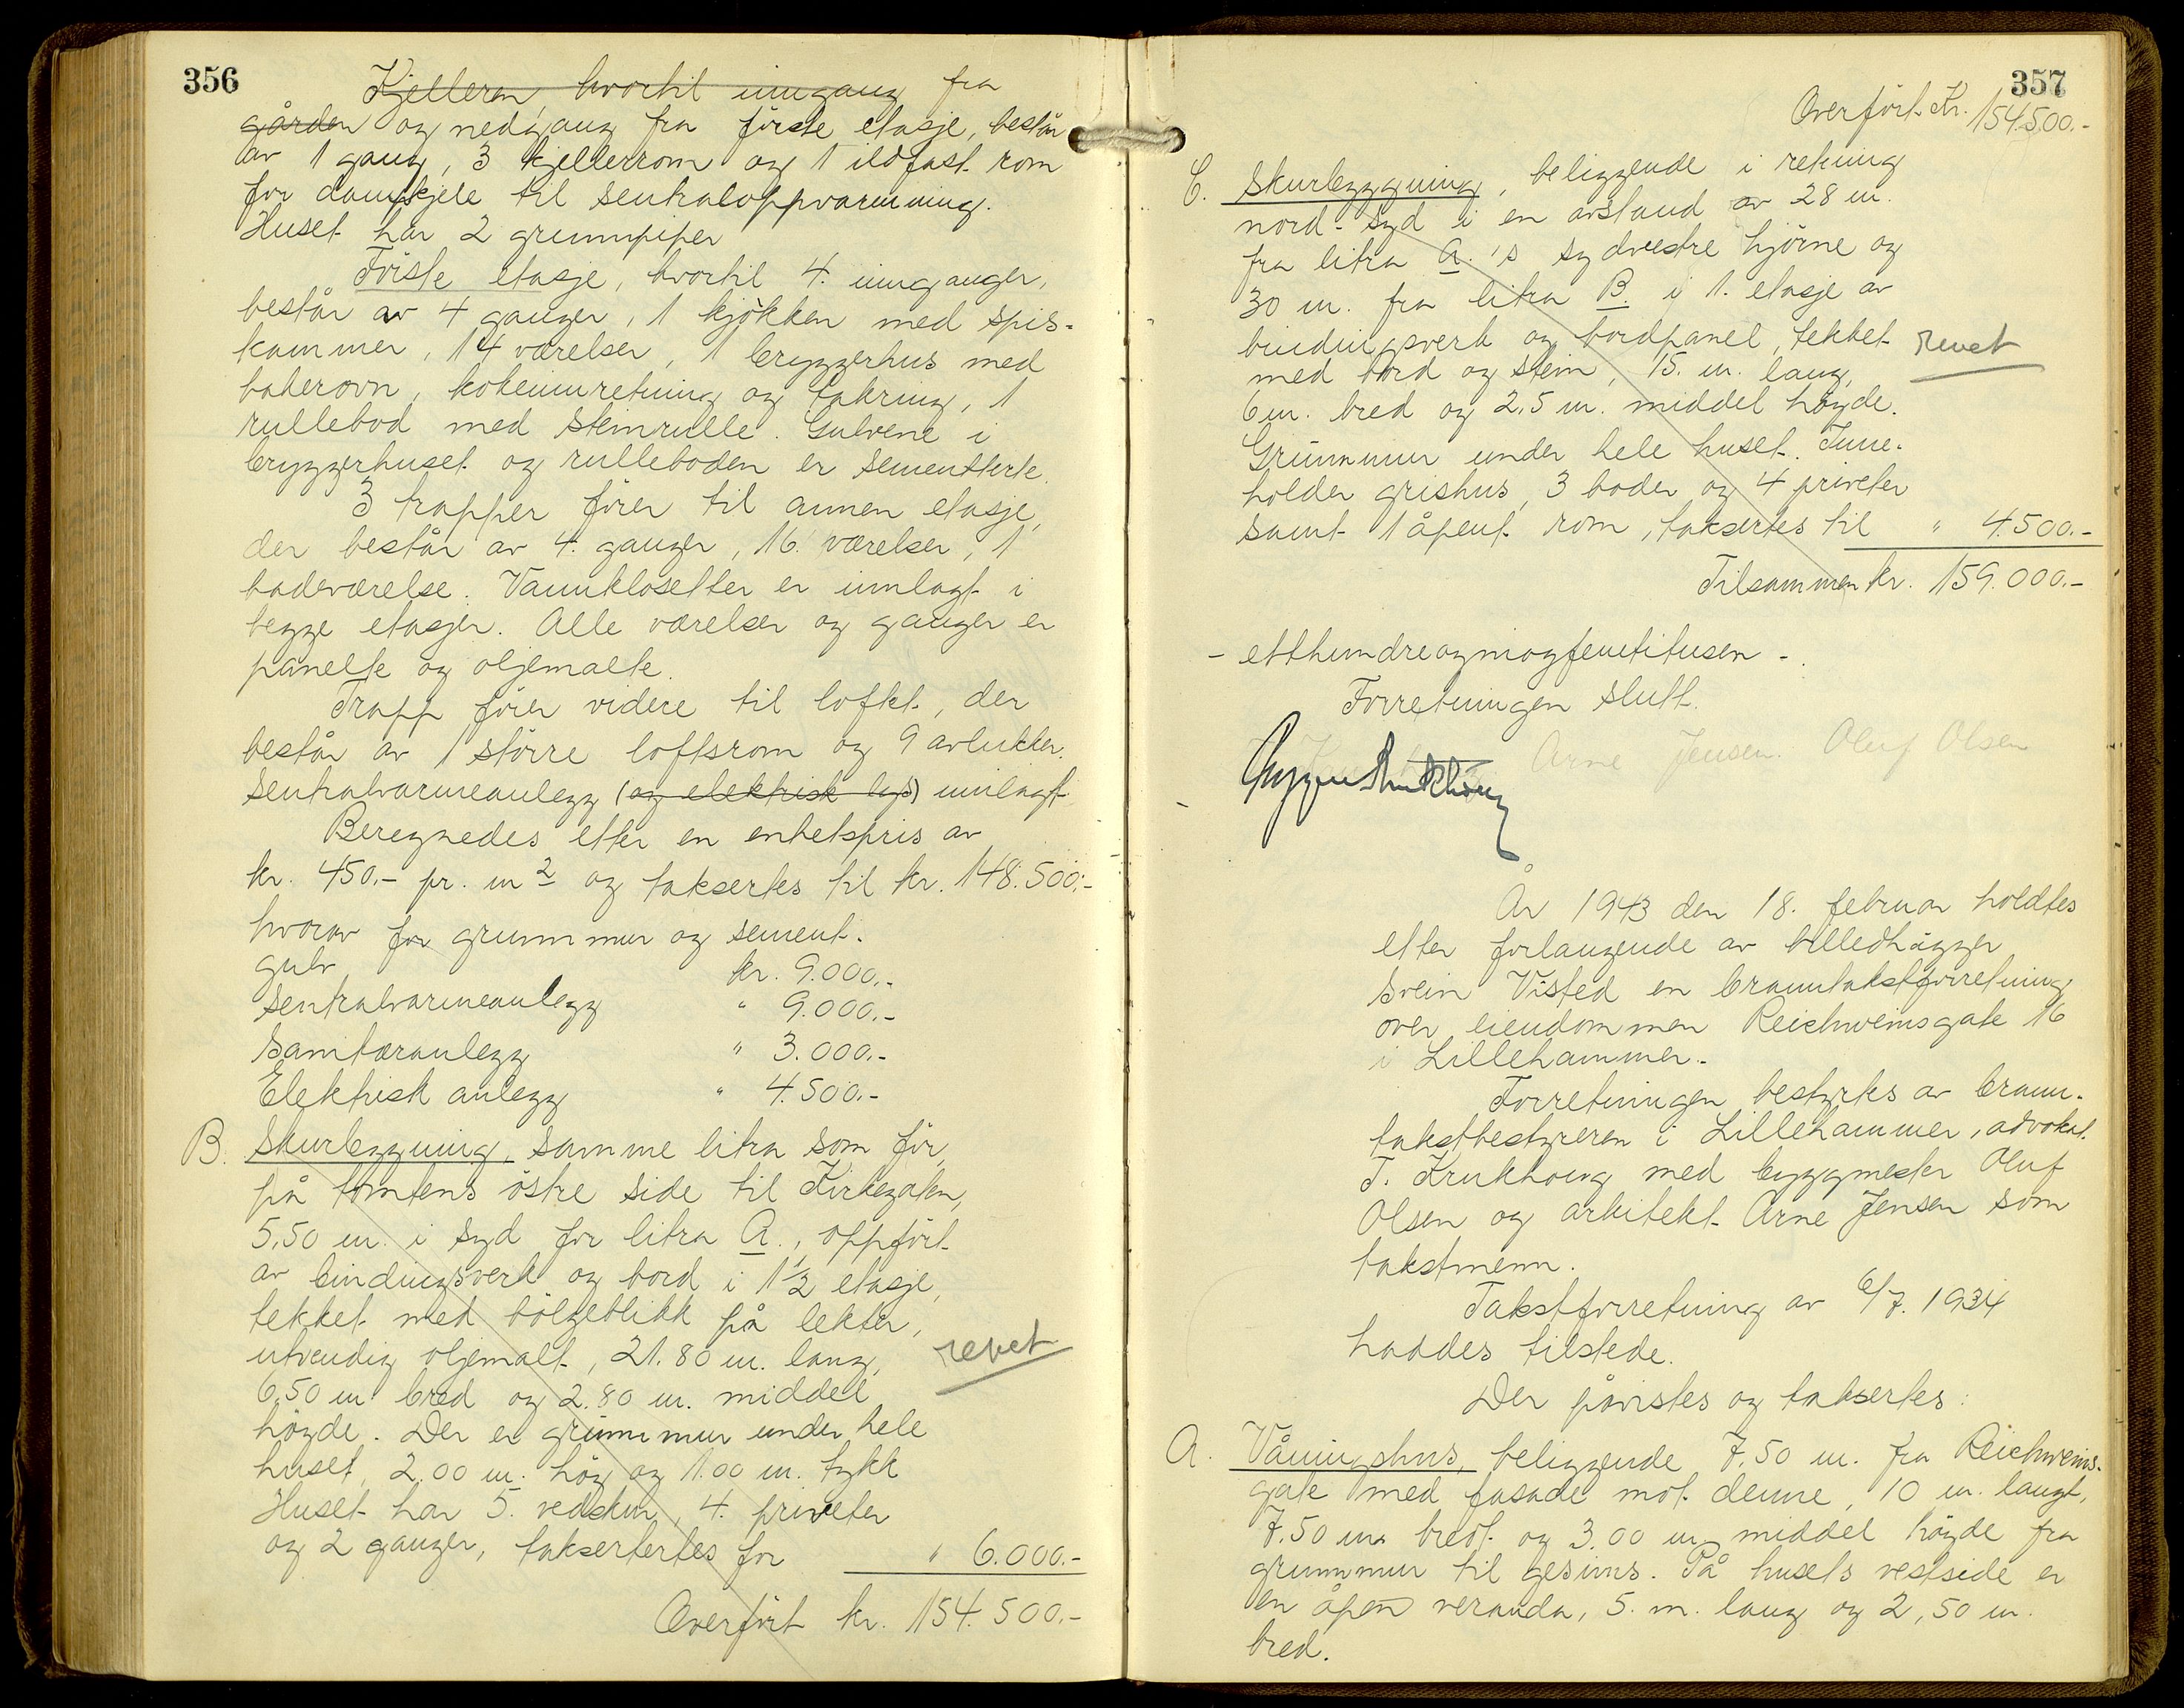 356
Kjelleren, hvortil inngang fra
gården og nedgang fra förste etasje, består
av 1 gang, 3 kjellerrom og 1 ildfast rom
for dampkjele til sentraloppvarming.
Huset har 2 grunnpiper
Förste etasje, hvortil 4 innganger,
består av 4 ganger, 1 kjökken med spis-
kammer, 14 værelser, 1 bryggerhus med
bakerovn, kokeinnretning og takring, 1
rullebod med stenrulle. Gulvene i
bryggerhuset og rulleboden er sementerte.
3 trapper förer til annen etasje,
der består av 4 ganger, 16 værelser, 1
badeværelse. Vannklosetter er innlagt i
begge etasjer. Alle værelser og ganger er
panelte og oljemalte.
Trapp förer videre til loftet, der
består av 1 större loftsrom og 9 avlukker.
Sentralvarmeanlegg (og elektrisk lys) innlagt
Beregnedes etter en enhetspris av
kr. 450.- pr. m2 og taksertes til kr. 148.500.-
hvorav for grunnmur og sement-
gulv kr. 9.000.-
Sentralvarmeanlegg " 9.000.-
Sanitæranlegg " 3.000.-
Elektrisk anlegg " 4.500.-
B. Skurbygning, samme litra som för,
på tomtens östre side til Kirkegaten,
5,50 m. i syd for litra A., oppfört
av bindingsverk og bord i 1½ etasje,
tekket med bölgeblikk på lekter,
utvendig oljemalt, 21.80 m. lang,
revet
6,50 m bred og 2.80 m. middel
höyde. Der er grunnmur under hele
huset, 2.00 m. höy og 1.00 m. tykk
Huset har 5. vedskur, 4. priveter
og 2 ganger, taksertertes for " 6.000.-
Overfört kr. 154.500.-
357
Overfört Kr. 154.500.-
C. Skurbyggning, beliggende i retning
nord-syd i en avstand av 28 m.
fra litra A.'s sydvestre hjörne og
30 m. fra litra B. i 1. etasje av
bindingsverk og bordpanel, tekket
revet
med bord og stein, 15. m. lang,
6 m. bred og 2,5 m. middel höyde.
Grunnmur under hele huset. Inne-
holder grishus, 3 boder og 4 priveter
samt 1 åpent rom, taksertes til " 4.500.-
Tilsammen kr. 159.000.-
- etthundreogniogfemtitusen -.
Forretningen slutt.
Arne Jensen. Oluf Olsen
År 1943 den 18. februar holdtes
etter forlangende av billedhugger
Svein Visted en branntakstforretning
over eiendommen Reichweinsgate 16
i Lillehammer.
Forretningen bestyrtes av brann-
takstbestyreren i Lillehammer, advokat
T. Krukhoug med byggmester Oluf
Olsen og arkitekt Arne Jensen som
takstmenn.
Takstforretning av 6/7. 1934
haddes tilstede.
Der påvistes og taksertes:
A. Våningshus, beliggende 7,50 m. fra Reichweins-
gate med fasade mot denne, 10 m. langt,
7.50 m. bredt og 3.00 m. middel höyde fra
grunnmur til gesims. På husets vestside er
en åpen veranda, 5. m. lang og 2,50 m.
bred.